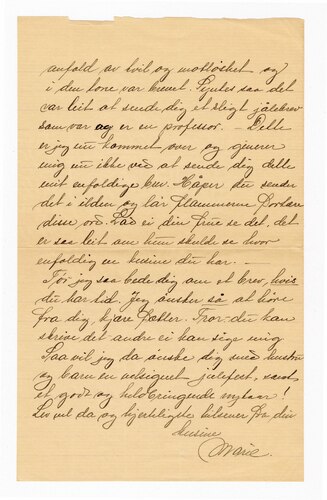 anfald av tvil og motløshet og
i den tone var brevet. Syntes saa det
var leit at sende dig et sligt jålebrev
som var og er en professor. — Dette
er jeg nu kommet over og generer
mig nu ikke ved at sende dig dette
mit enfoldige brev. Håper du sender
det i ilden og lar Flammerne fortære
disse ord. Lad ei din frue se det, det
er saa leit om hun skulde se hvor
enfoldig en kusine du har. —
Tør jeg saa bede dig om et brev, hvis
du har tid. Jeg ønsker så at høre
fra dig, kjære Fetter. Tror du kan
skrive det andre ei kan sige mig.
Saa vil jeg da ønske dig med hustru
og barn en velsignet julefest, samt
et godt og held bringende nytaar!
Lev vel da og hjerteligste hilsener fra din
kusine
Marie.